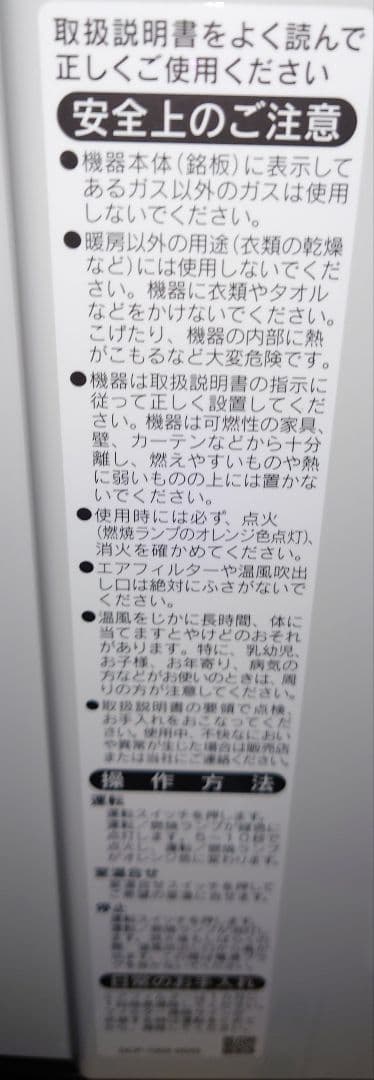 取扱説明書をよく読んで
正しくご使用ください
安全上のご注意
●機器本体(銘板)に表示して
あるガス以外のガスは使用
しないでください。
●暖房以外の用途(衣類の乾燥
など)には使用しないでくだ
さい。機器に衣類やタオル
などをかけないでください。
こげたり、機器の内部に熱
がこもるなど大変危険です。
●機器は取扱説明書の指示に
従って正しく設置してくだ
さい。機器は可燃性の家具、
壁、カーテンなどから十分
離し、燃えやすいものや熱
に弱いものの上には置かな
いでください。
●使用時には必ず、点火
(燃焼ランプのオレンジ色点灯)、
消火を確かめてください。
●エアフィルターや温風吹出
し口は絶対にふさがないで
ください。
●温風をじかに長時間、体に
当てますとやけどのおそれ
があります。特に、乳幼児、
お子様、お年寄り、病気の
方などがお使いのときは、周
りの方が注意してください。
●取扱説明書の要領で点検、
お手入れをおこなってくだ
さい。使用中、不快なにおい
や異常が生じた場合は販売店
または当社にご連絡ください。
操作方法
運転
運転スイッチを押します。
点灯します。5〜10秒で
点火し、運転/燃焼ランプ
がオレンジ色に変わります。
室温合せ
室温合せスイッチを押して
ご希望の室温に合せます。
停止
運転スイッチを押します。
日常のお手入れ